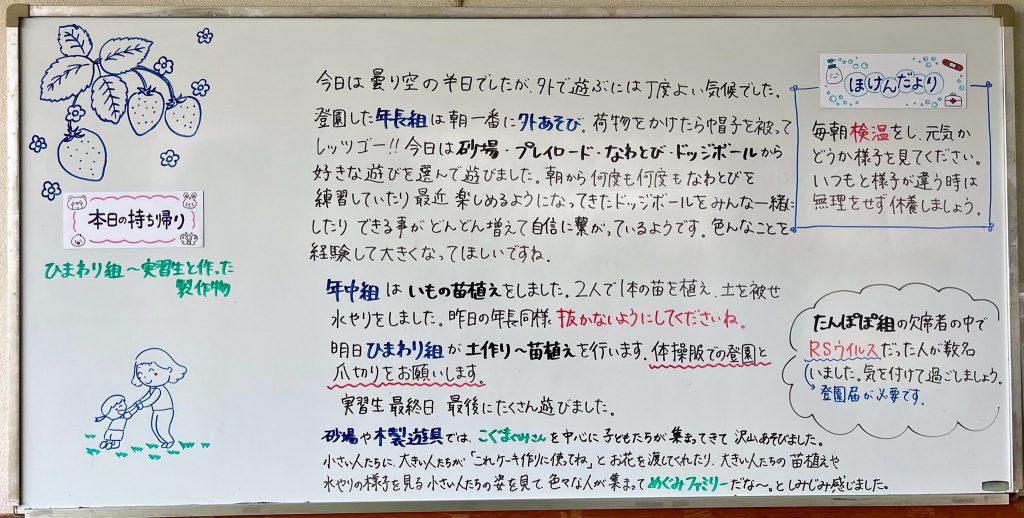 本日の持ち帰り
ひまわり組〜実習生と作った
製作物
今日は曇り空の半日でしたが、外で遊ぶには丁度よい気候でした。
登園した年長組は朝一番に外あそび。荷物をかけたら帽子を被って
レッツゴー!! 今日は砂場・プレイロード・なわとび・ドッジボールから
好きな遊びを選んで遊びました。朝から何度も何度もなわとびを
練習していたり最近楽しめるようになってきたドッジボールをみんな一緒に
したりできる事がどんどん増えて自信に繋がっているようです。色んなことを
経験して大きくなってほしいですね。
年中組はいもの苗植えをしました。2人で1本の苗を植え、土を被せ
水やりをしました。昨日の年長同様抜かないようにしてくださいね。
明日ひまわり組が土作り〜苗植えを行います。体操服での登園と
爪切りをお願いします。
実習生最終日 最後にたくさん遊びました。
砂場や木製遊具では、こぐまぐみさんを中心に子どもたちが集まってきて沢山あそびました。
小さい人たちに、大きい人たちが「これケーキ作りに使ってね」とお花を渡してくれたり、大きい人たちの苗植えや
水やりの様子を見る小さい人たちの姿を見て、色々な人が集まってめぐみファミリーだな〜。としみじみ感じました。
ほけんだより
毎朝検温をし、元気か
どうか様子を見てください。
いつもと様子が違う時は
無理をせず休養しましょう。
たんぽぽ組の欠席者の中で
RSウイルスだった人が数名
いました。気を付けて過ごしましょう。
登園届が必要です。